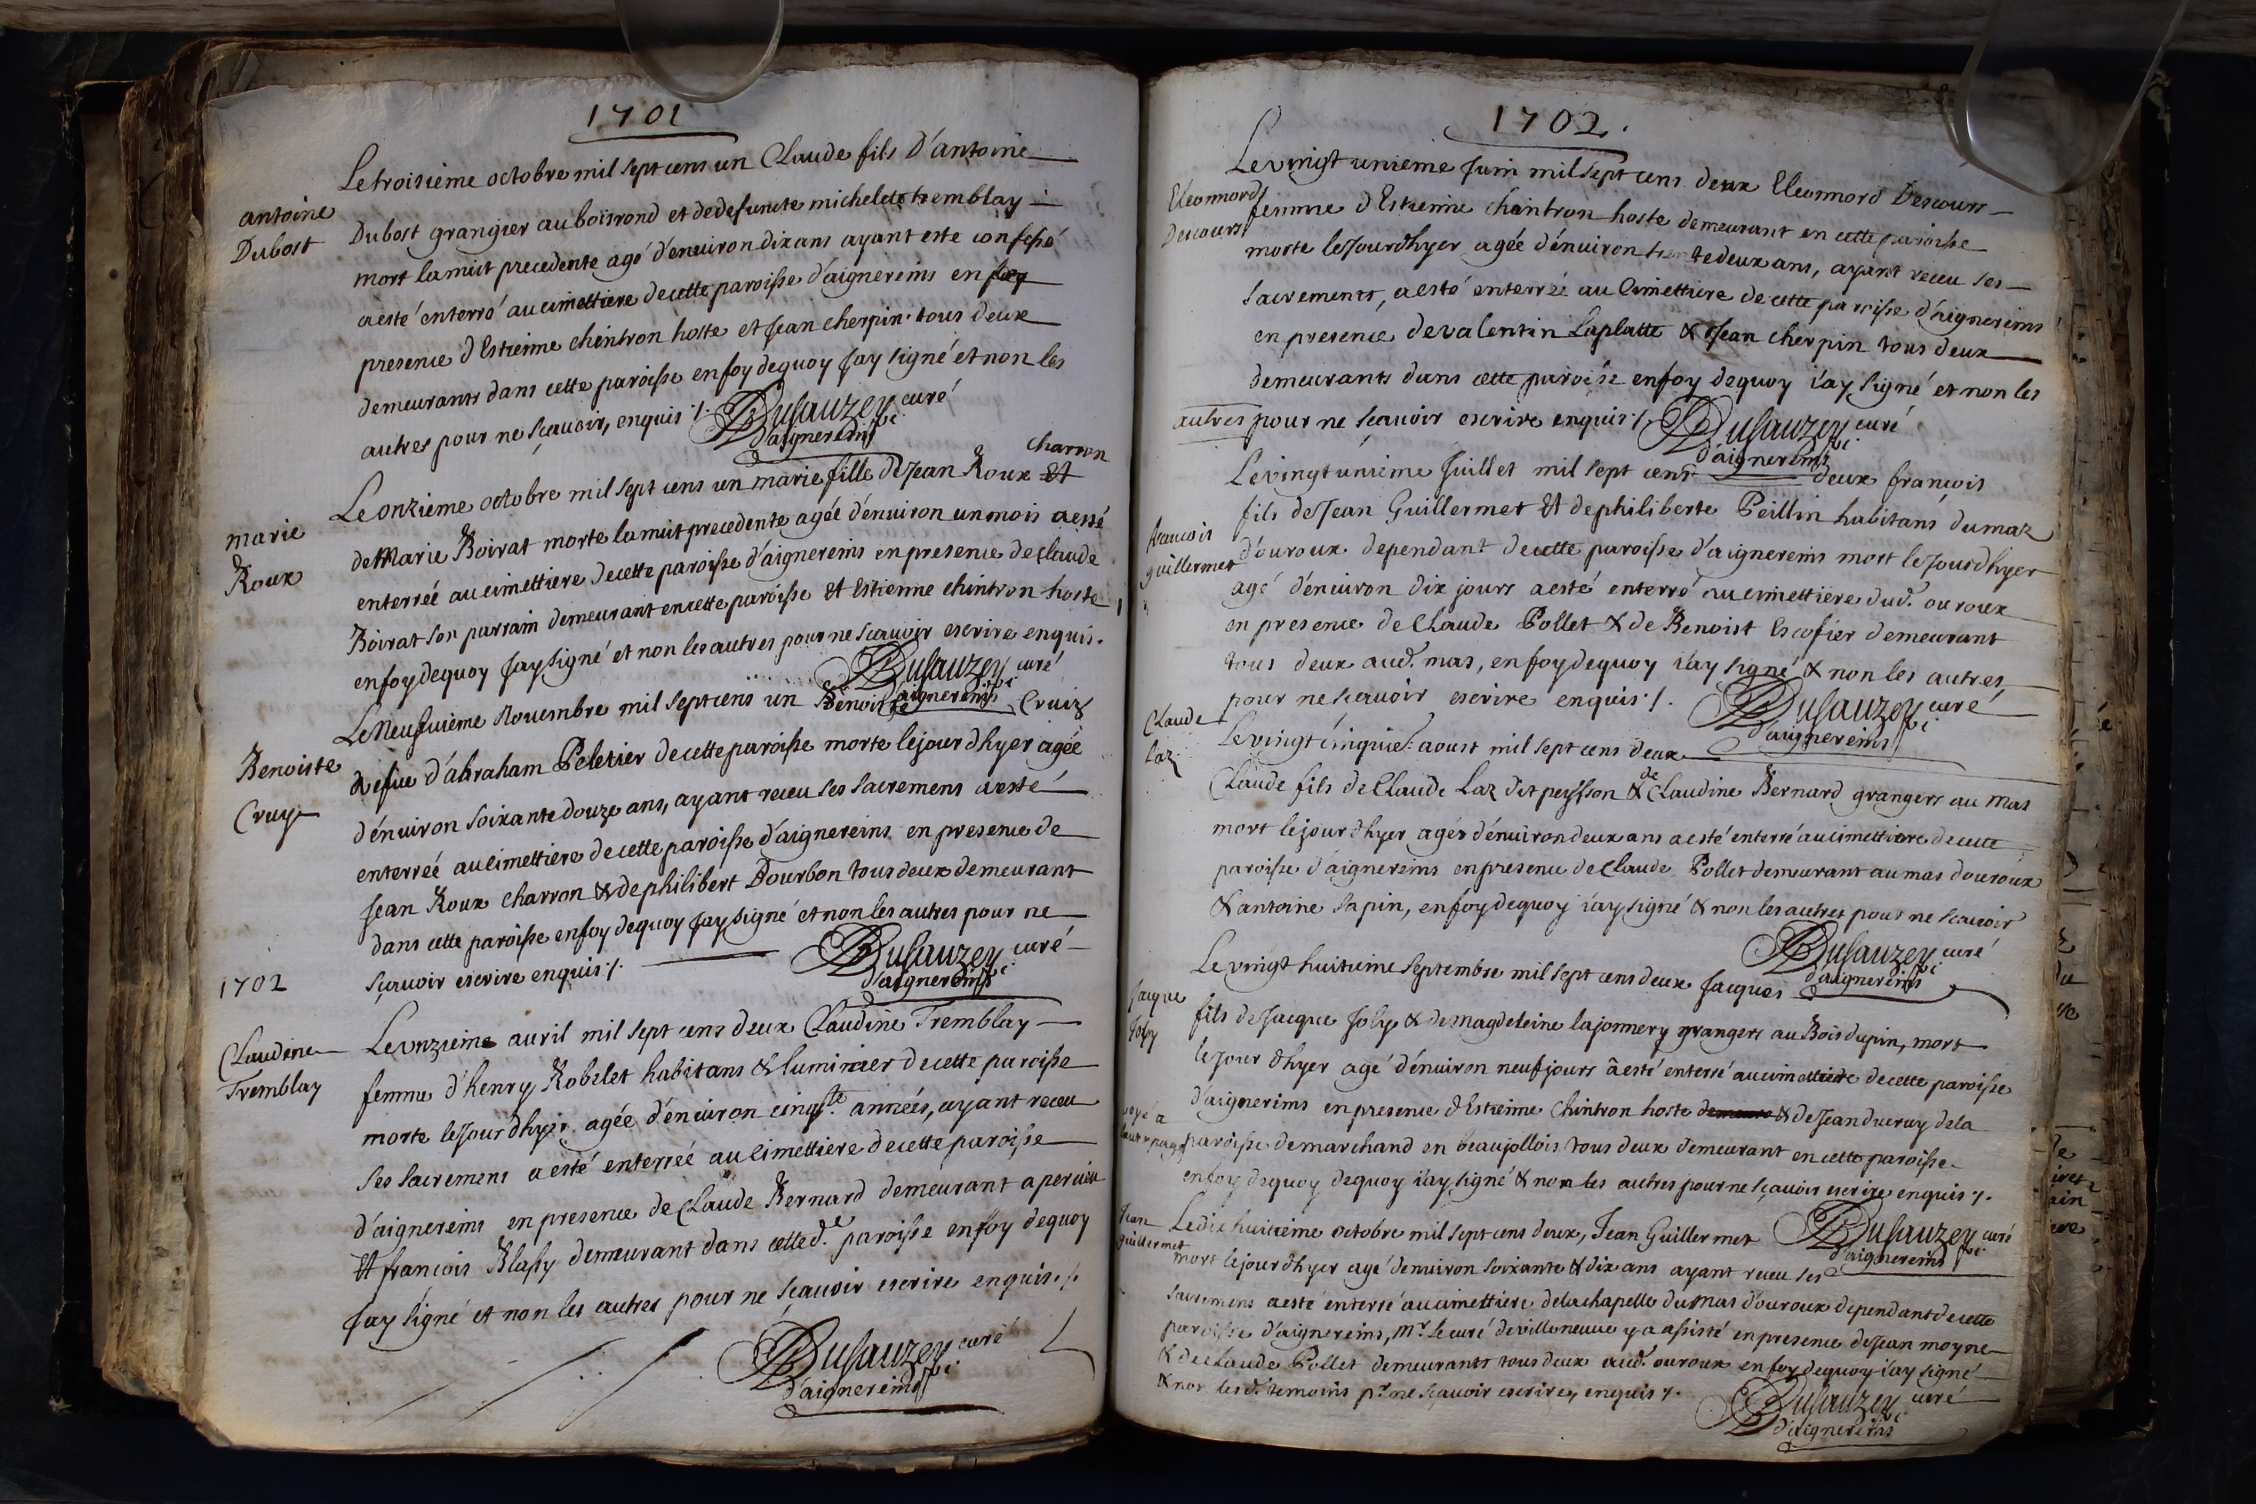 1701
Le troisieme octobre mil sept cens un Claude fils d'antoine
antoine
Dubost
Dubost grangier au boisrond et dedefuncte michelete tremblay
mort la nuit precedente agé d'enuiron dix ans ayant esté confessé
a esté enterré au cimettiere decette paroisse d'aignereins en
presence d'Estienne chintron hoste et Jean cherpin tous deux
demeurants dans cette paroisse en foy dequoy Jay signé et non les
autres pour ne sçauoir, enquis ·/. Dusauzey curé
d'aignereins
charron
Le onzieme octobre mil sept cens un marie fille de Jean Roux et
marie
Roux
de Marie Boirat morte la nuit precedente agée d'enuiron un mois a esté
enterrée au cimettiere decette paroisse d'aignereins en presence de Claude
Boirat son parrain demeurant en cette paroisse et Estienne chintron hoste
en foy dequoy Jay signé et non les autres pour ne scauoir escrire enquis.
Dusauzey curé
d'aignereins
Le Neufuieme Nouembre mil sept cens un Benoiste Cruiz
Benoiste
Cruy
vefue d'abraham Peletier decette paroisse morte le jour dhyer agée
d'enuiron soixante douze ans, ayant receu ses sacremens a esté
enterrée au cimettiere decette paroisse d'aignereins en presence de
Jean Roux charron & de philibert Bourbon tous deux demeurant
dans cette paroisse en foy dequoy Jay signé et non les autres pour ne
sçauoir escrire enquis ·/. Dusauzey curé
d'aignereins
1702
Le unzieme auril mil sept cens deux Claudine Tremblay
Claudine
Tremblay
femme d'henry Robelet habitans & luminier decette paroisse
morte le Jour dhyer agée d'enuiron cinqte. années, ayant receu
ses sacremens a esté enterréé au cimettiere decette paroisse
d'aignereins en presence de Claude Bernard demeurant a
et francois Blassy demeurant dans cetted.e paroisse en foy dequoy
Jay signé et non les autres pour ne scauoir escrire enquis ·/.
Dusauzey curé
d'aignereins
1702.
Le vingt unieme Juin mil sept cens deux Eleonnord Descours
Eleonnord
Descours
femme d'Estienne chintron hoste demeurant en cette paroisse
morte le Jour dhyer agée d'enuiron trente deux ans, ayant receu ses
sacrements, a esté enterrée au Cimettiere de cette paroisse d'aignereins
en presence de valentin Laplatte & Jean cherpin tous deux
demeurants dans cette paroisse en foy dequoy i'ay signé et non les
autres pour ne scauoir escrire enquis ·/. Dusauzey curé
d'aignereins
Le vingt unieme Juillet mil sept cens deux francois
francois
guillermet
fils de Jean Guillermet et de philiberte Peillin habitans du maz
d'ouroux dependant decette paroisse d'aignereins mort le Jour dhyer
agé d'enuiron dix jours a esté enterré au cimettiere dud. ouroux
en presence de Claude Pollet & de Benoist Escofier demeurant
tous deux aud. mas, en foy dequoy i'ay signé & non les autres
pour ne scauoir escrire enquis ·/. Dusauzey curé
d'aignereins
Claude
Laz
Le vingt cinquie. aoust mil sept cens deux
Claude fils de Claude Laz dit peysson & de Claudine Bernard grangers au Mas
mort le jour dhyer agér d'enuiron deux ans a esté enterré au cimettiere de cette
paroisse d'aignereins en presence de Claude Pollet demeurant au mas douroux
& antoine sapin, en foy dequoy i'ay signé & non les autres pour ne scauoir
Dusauzey curé
d'aignereins
Le vingt huitieme septembre mil sept cens deux Jacques
Jacque
Joly
fils de Jacque Joly & de Magdeleine lajonnery grangers au Bois dupin, mort
le jour dhyer agé d'enuiron neuf jours a esté enterré au cimettiere decette paroisse
d'aignereins en presence d'Estienne Chintron hoste & de Jean ducruy dela
paroisse de marchand en beaujollois tous deux demeurant en cette paroisse
en foy dequoy dequoy i'ay signé & non les autres pour ne sçauoir escrire enquis ·/.
Dusauzey curé
d'aignereins
Jean
guillermet
Le dix huitieme octobre mil sept cens deux, Jean Guillermet
mort le jour dhyer agé d'enuiron soixante & dix ans ayant receu ses
sacremens a esté enterré au cimettiere dela chapelle du Mas d'ouroux dependant decette
paroisse d'aignereins, Mr. Le curé de villeneuue y a assisté en presence de Jean moyne
& de Claude Pollet demeurants tous deux aud. ouroux en foy dequoy i'ay signé
& non lesd. temoins pr. ne sçauoir escrire, enquis ·/.
Dusauzey curé
d'aignereins